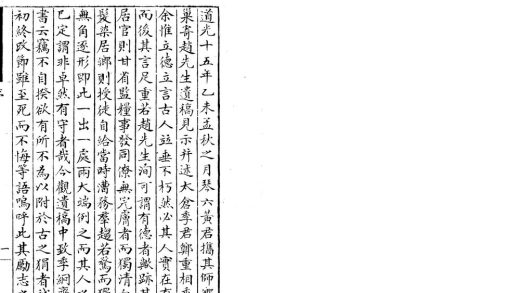 道光十五年乙未孟秋之月琴六黃君攜其師
巢寄趙先生遺稿見示并述太倉季君鄭重相
余惟立德立言古人竝垂不朽然必其人實在有
而後其言足重若趙先生洵可謂有德者歟跡其
居官則甘省監糧事發同僚無完膚者而獨清白
髮染居鄉則授徒自給當時漕務羣趨若鶩而獨
無角逐形即此一出一處兩大端例之而其人
已定謂非卓然有守者哉今觀遺稿中致季綱
書云竊不自揆欲有所不為以附於古之狷者
初終改節雖至死而不悔等語嗚呼此其勵志
一